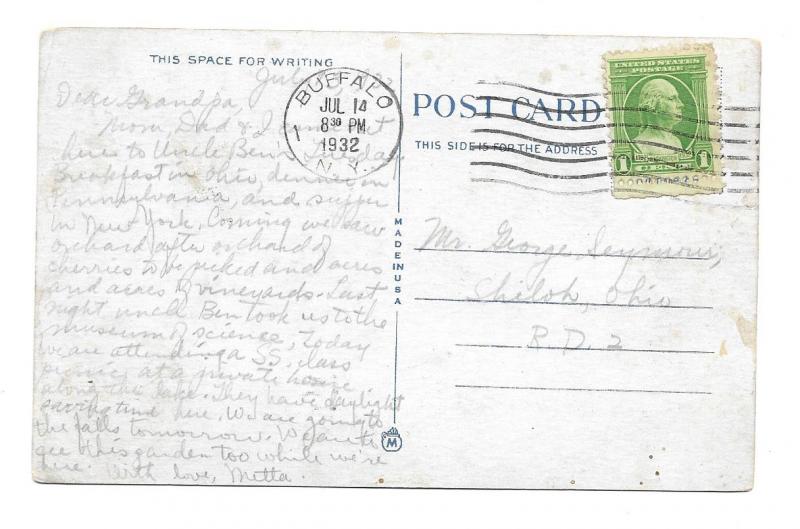 THIS SPACE FOR WRITING
July
Dear Grandpa,
Mom, Dad & I came out
here to Uncle Ben's Tuesday.
Breakfast in Ohio, dinner in
Pennsylvania, and supper
in New York. Coming we saw
orchard after orchard of
cherries to be picked and acres
and acres of vineyards. Last
night uncle Ben took us to the
museum of science. Today
we are attending a SS. class
picnic at a private house
along the lake. They have daylight
saving time here. We are going to
the falls tomorrow. We
see this garden too while we're
here. With love, Metta.
BUFFALO
JUL 14
8 30 PM
1932
N.Y.
1
MADE IN USA
M
POST CARD
THIS SIDE IS FOR THE ADDRESS
UNITED STATES
POSTAGE
1
1
Mr. George Seymour,
Shiloh, Ohio
R.D. 2